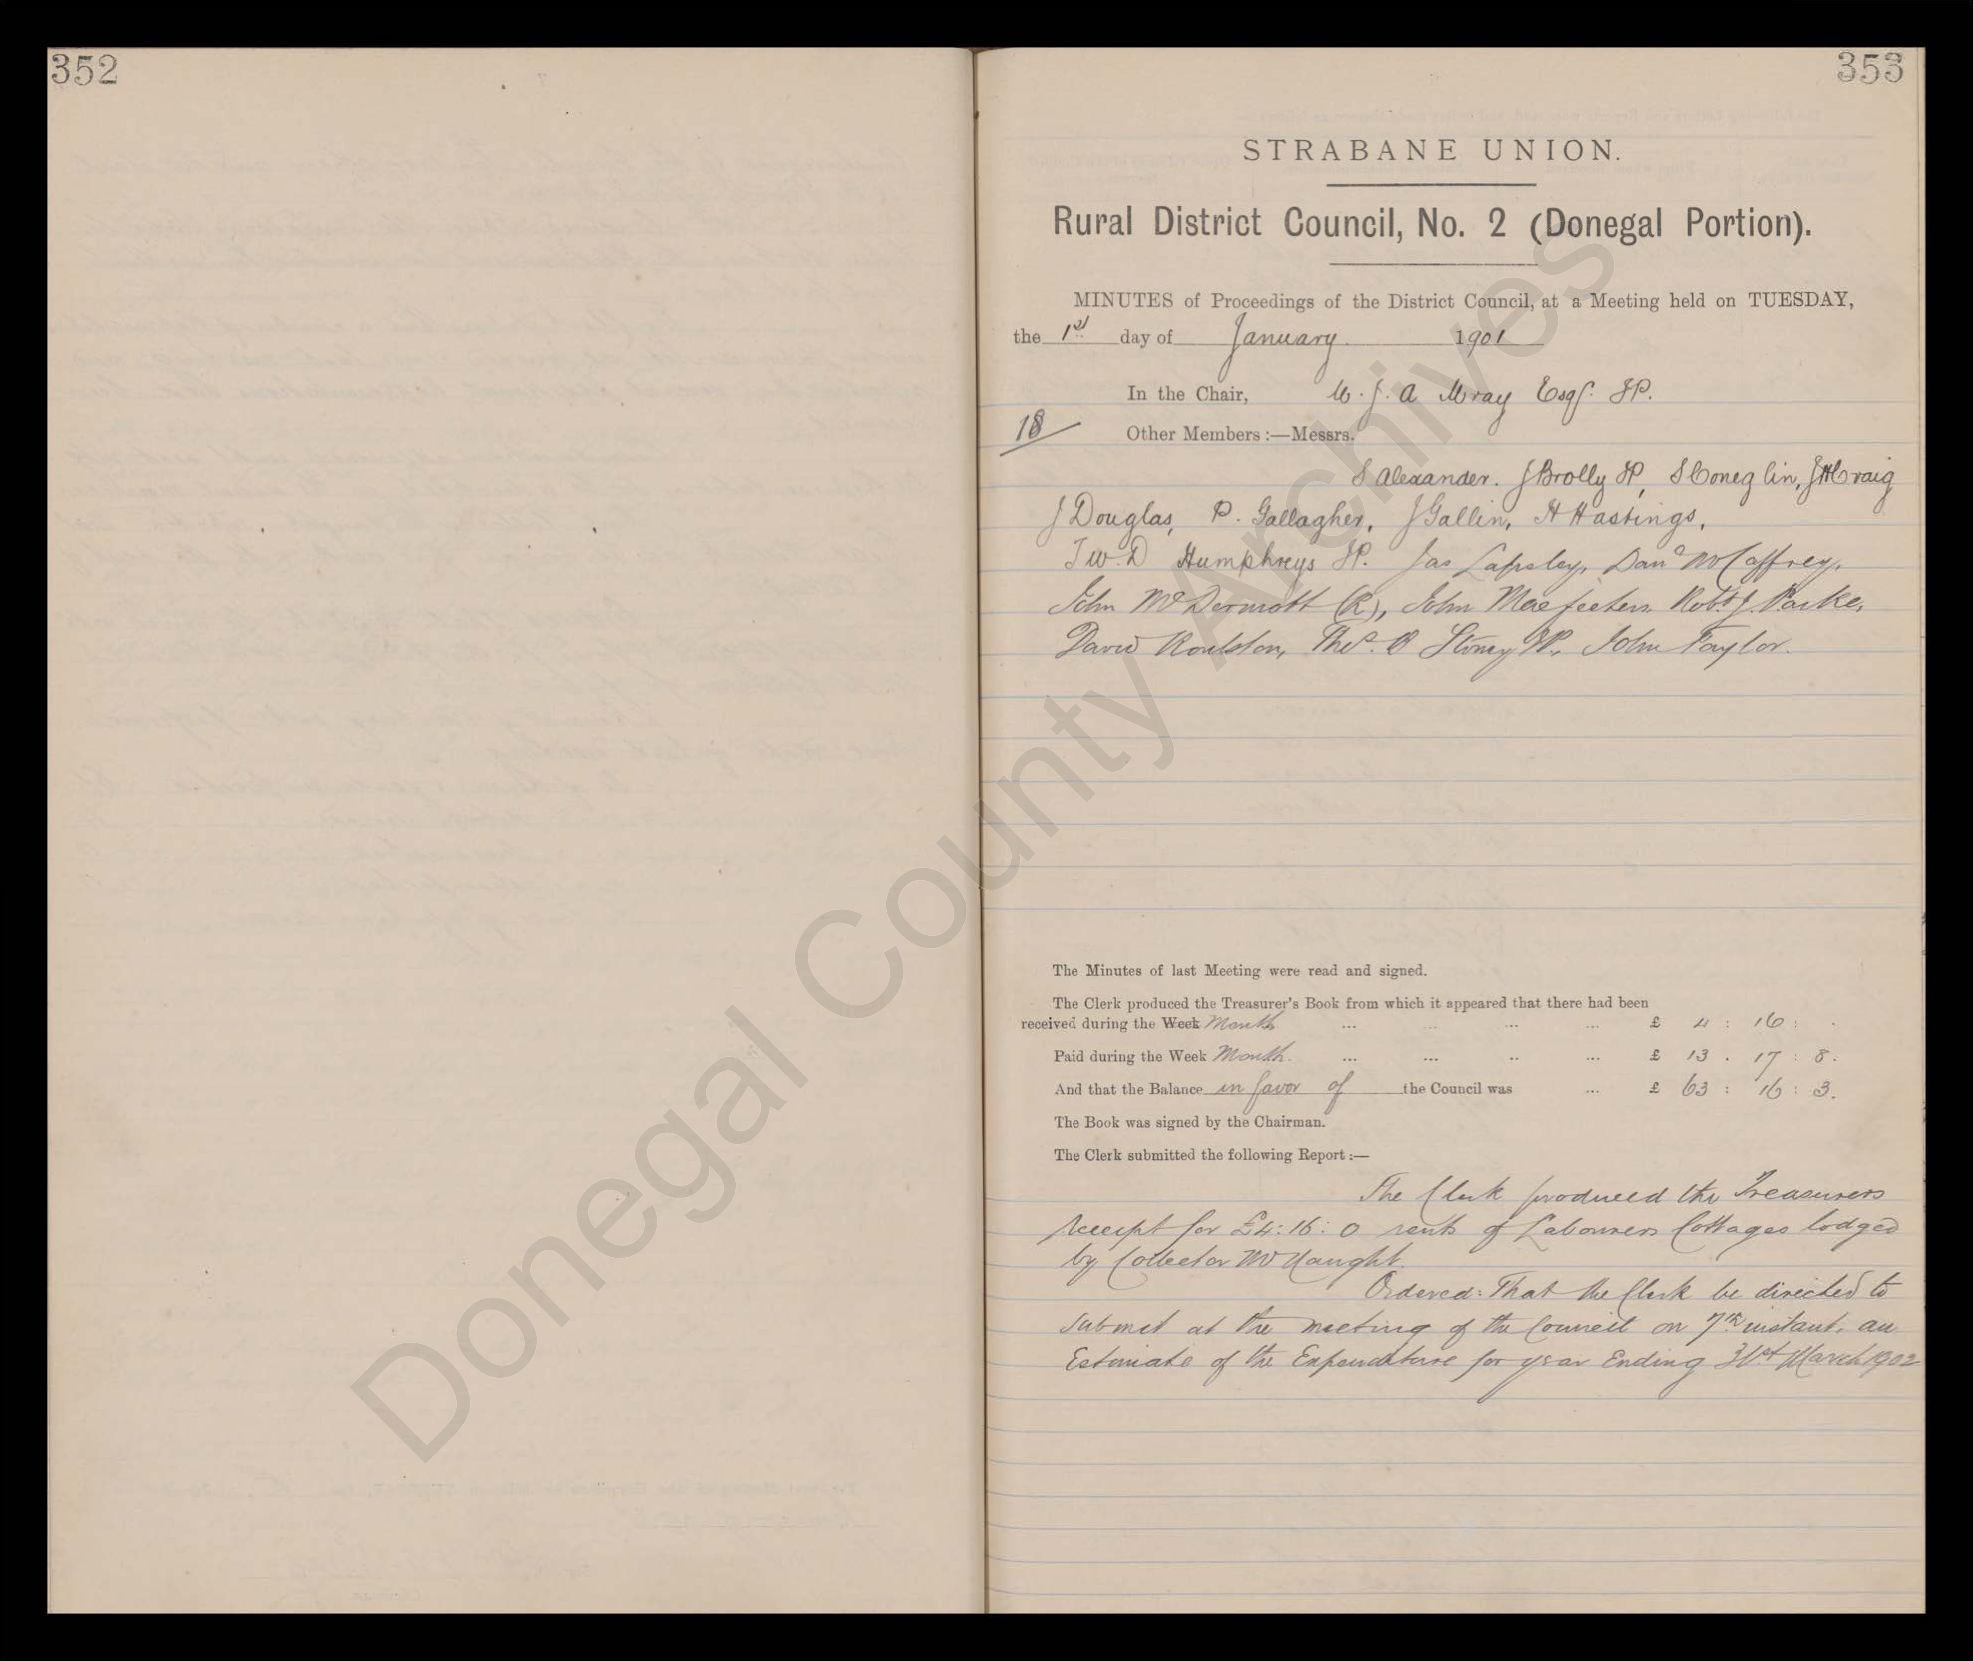 352
353
STRABANE UNION.
Rural District Council, No. 2 (Donegal Portion).
MINUTES of Proceedings of the District Council, at a Meeting held on TUESDAY,
the 1st day of January 1901
In the Chair, W. J. A Wray Esqr. JP.
18
Other Members :—Messrs.
S Alexander. J Brolly JP, S Coneglin, J H Craig
J Douglas, P. Gallagher, J Gallin, H Hastings,
T W. D Humphreys JP. Jas Lapsley, Danl McCaffrey,
John McDermott (R), John Macfeeters Robt. J. Parke,
David Roulston, Thos. B Stoney JP., John Taylor.
The Minutes of last Meeting were read and signed.
The Clerk produced the Treasurer's Book from which it appeared that there had been
received during the Week Month ... ... ... ... £ 4 : 16 : .
Paid during the Week Month. ... ... .. ... £ 13 . 17 : 8.
And that the Balance in favor of the Council was ... £ 63 : 16 : 3.
The Book was signed by the Chairman.
The Clerk submitted the following Report :—
The Clerk produced the Treasurers
receipt for £4:16:0 rents of Labourers Cottages lodged
by Collector McNaught.
Ordered: That the Clerk be directed to
submit at the meeting of the Council on 7th instant. an
Estimate of the Expenditure for year Ending 31st March 1902
Donegal County Archives